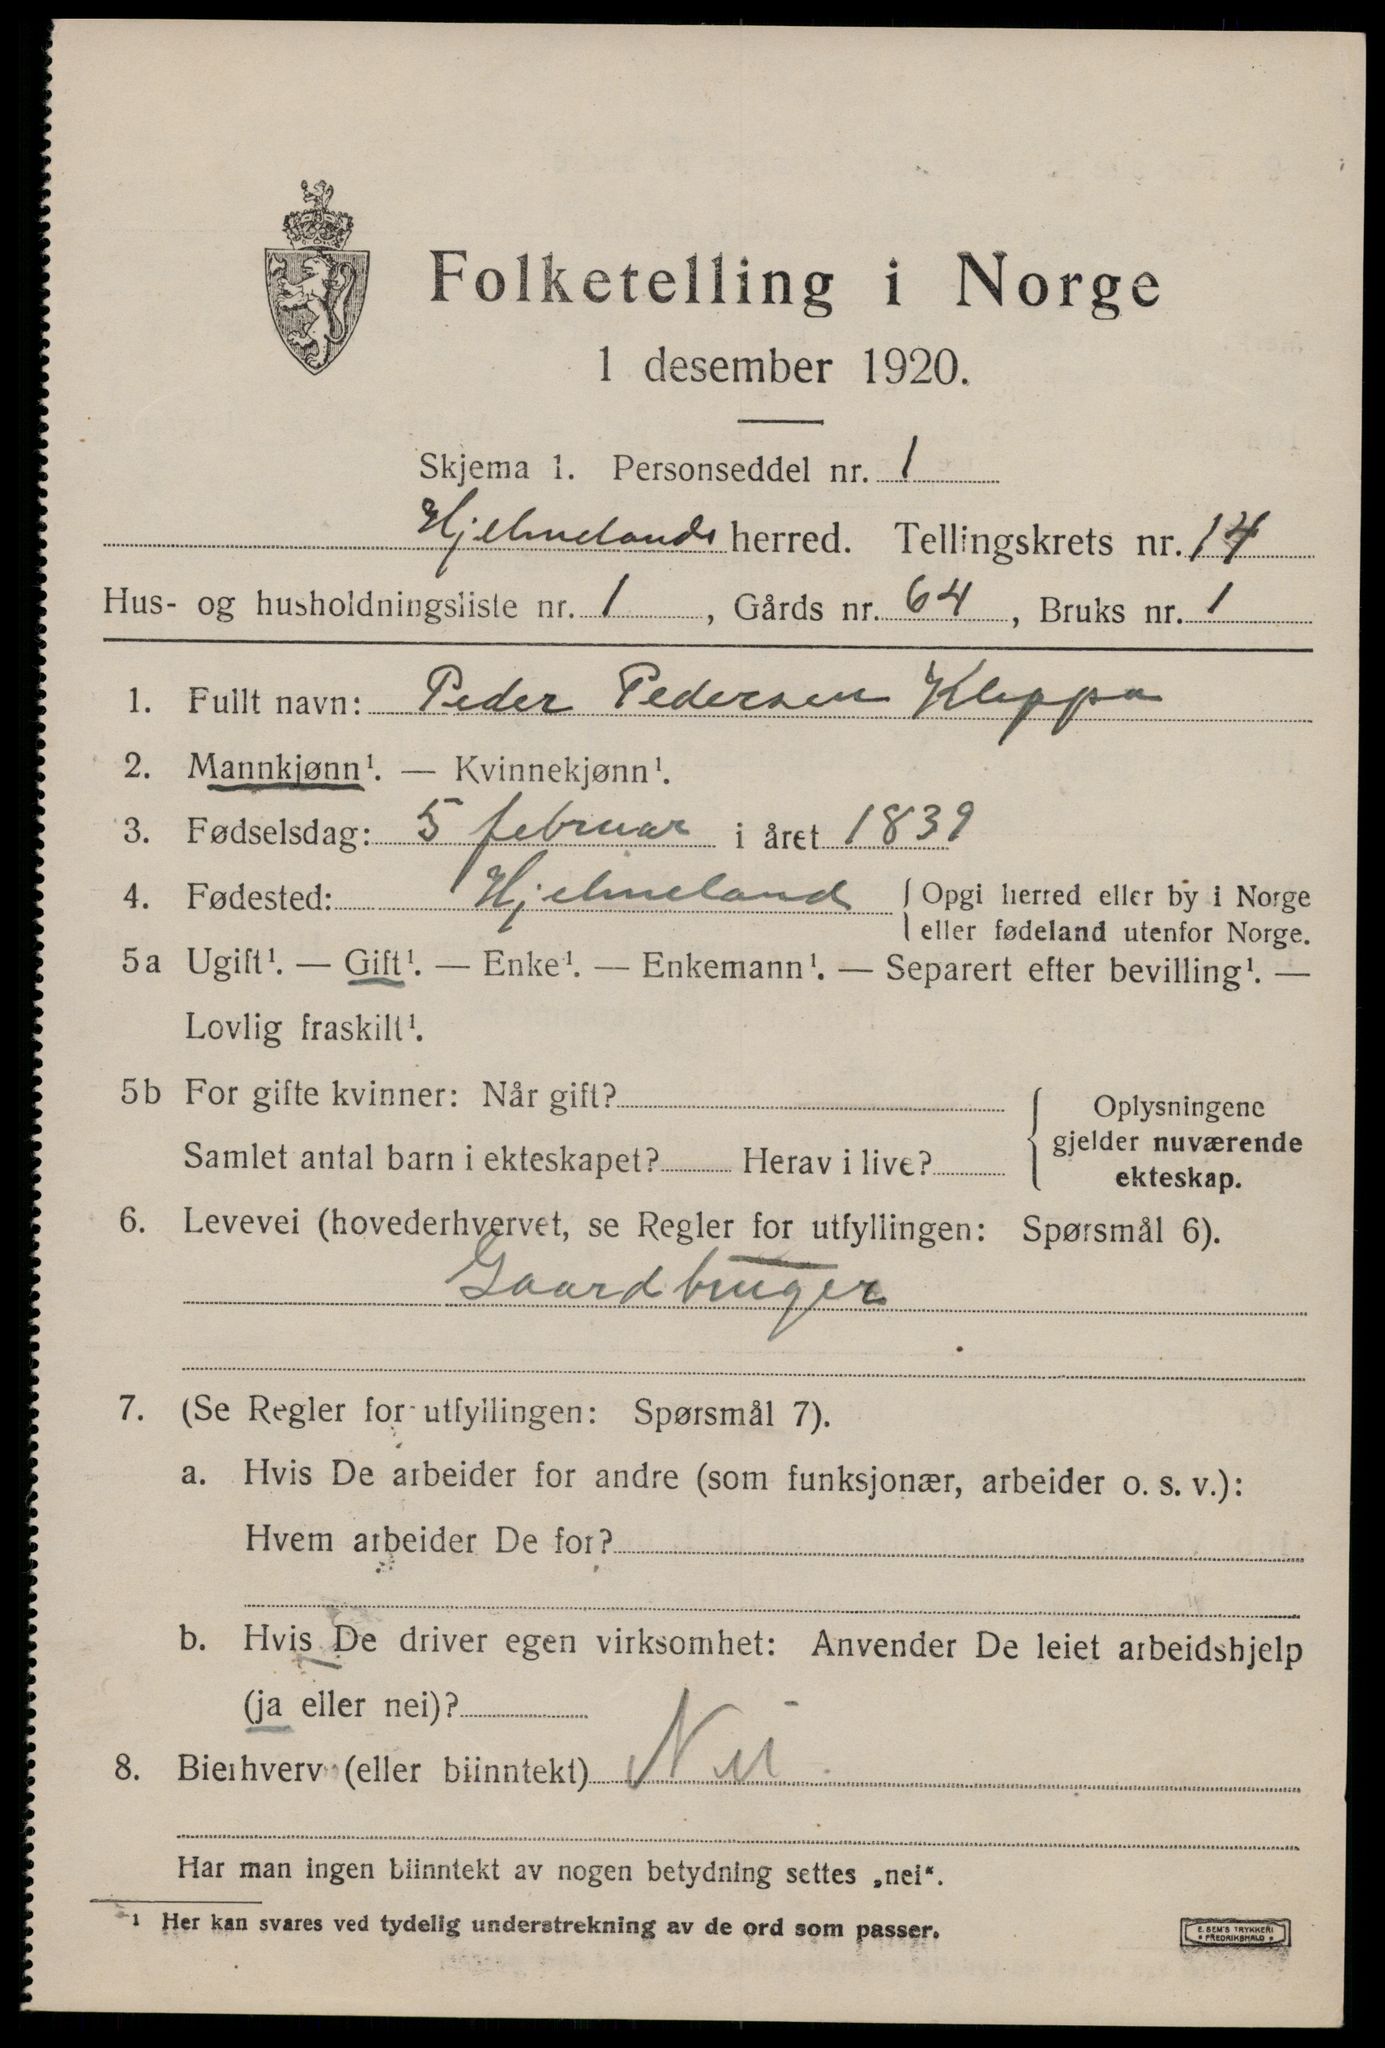 Folketelling i Norge
1 desember 1920.
Skjema 1. Personseddel nr. 1
Hjelmelands herred. Tellingskrets nr. 14
Hus- og husholdningsliste nr. 1, Gårds nr. 64, Bruks nr. 1
1. Fullt navn: Peder Pedersen Kleppa
2. Mannkjønn¹. — Kvinnekjønn¹.
3. Fødselsdag: 5 februar i året 1839
4. Fødested: Hjelmeland { Opgi herred eller by i Norge
eller fødeland utenfor Norge.
5a Ugift¹. — Gift¹. — Enke¹. — Enkemann¹. — Separert efter bevilling¹. —
Lovlig fraskilt¹.
5b For gifte kvinner: Når gift?
Samlet antal barn i ekteskapet? Herav i live?
Oplysningene
gjelder nuværende
ekteskap.
6. Levevei (hovederhvervet, se Regler for utfyllingen: Spørsmål 6).
Gaardbruger
7. (Se Regler for utfyllingen: Spørsmål 7).
a. Hvis De arbeider for andre (som funksjonær, arbeider o. s. v.):
Hvem arbeider De for?
b. Hvis De driver egen virksomhet: Anvender De leiet arbeidshjelp
(ja eller nei)?
8. Bierhverv (eller biinntekt) Nei
Har man ingen biinntekt av nogen betydning settes „nei“.
¹ Her kan svares ved tydelig understrekning av de ord som passer.
E. SEM'S TRYKKERI
FREDRIKSHALD